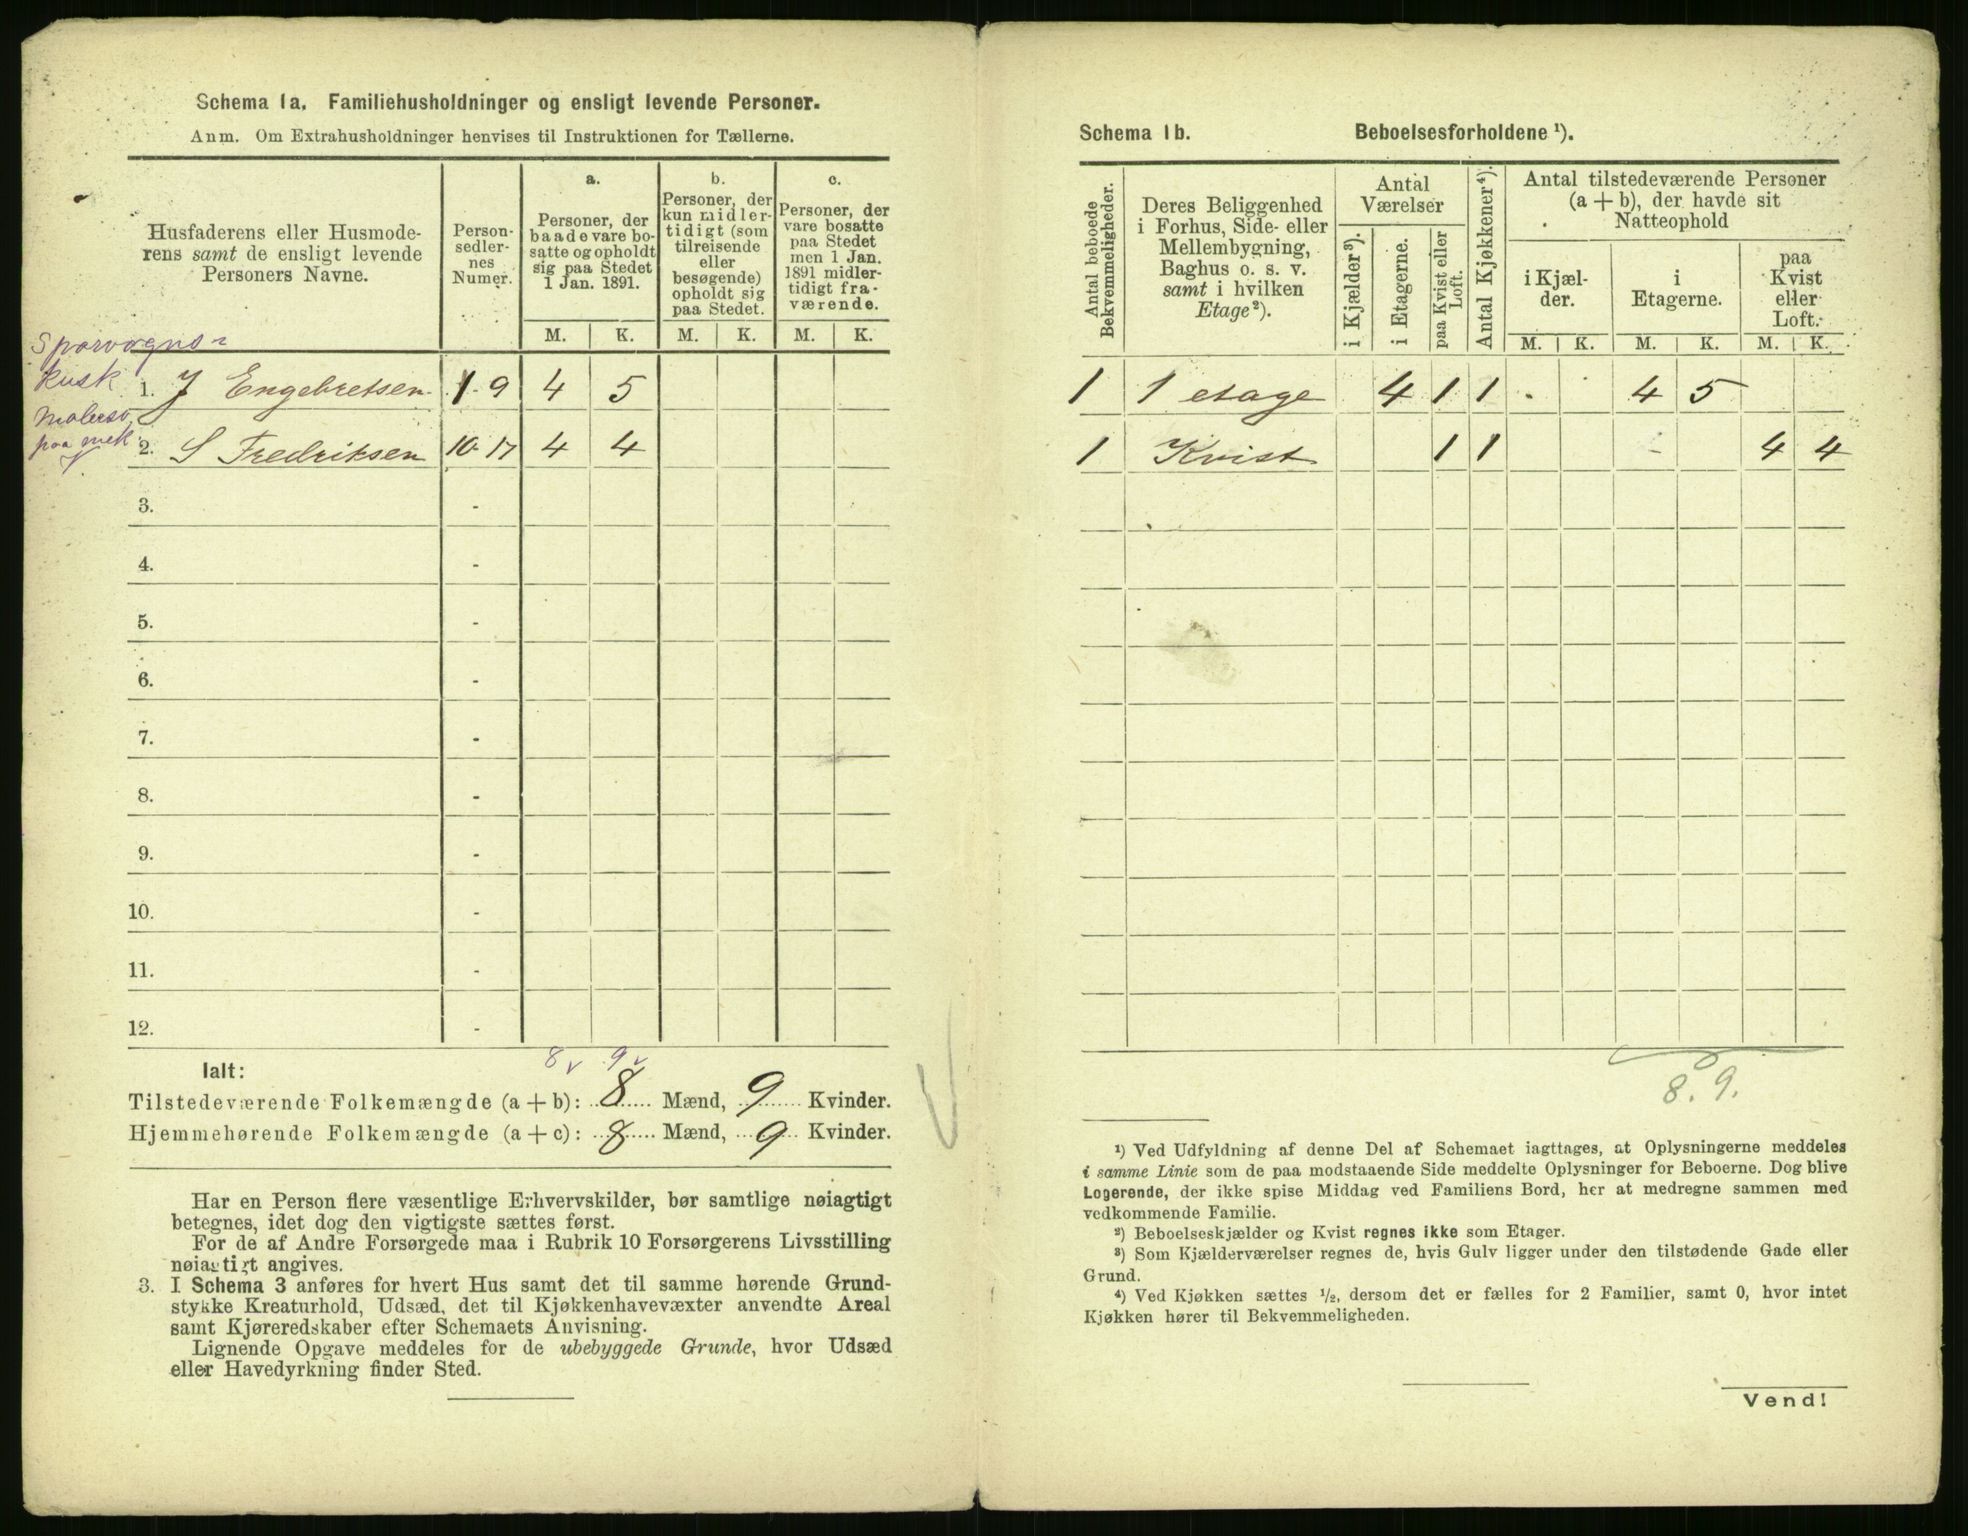 Schema 1a. Familiehusholdninger og ensligt levende Personer.
Anm. Om Extrahusholdninger henvises til Instruktionen for Tællerne.
Husfaderens eller Husmode-
rens samt de ensligt levende
Personers Navne.
Person-
sedler-
nes
Numer.
a.
Personer, der
baade vare bo-
satte og opholdt
sig paa Stedet
1 Jan. 1891.
b.
Personer, der
kun midler-
tidigt (som
tilreisende
eller
besøgende)
opholdt sig
paa Stedet.
c.
Personer, der
vare bosatte
paa Stedet
men 1 Jan.
1891 midler-
tidigt fra-
værende.
M. K. M. K. M. K.
Sporvogns-
kusk
1. J Engebretsen 1-9 4 5
Malersv
paa
2. S Fredriksen 10-17 4 4
3. -
4. -
5. -
6. -
7. -
8. -
9. -
10. -
11. -
12. -
8 v 9 v
Ialt:
Tilstedeværende Folkemængde (a + b): 8 Mænd, 9 Kvinder.
Hjemmehørende Folkemængde (a + c): 8 Mænd, 9 Kvinder.
Har en Person flere væsentlige Erhvervskilder, bør samtlige nøiagtigt
betegnes, idet dog den vigtigste sættes først.
For de af Andre Forsørgede maa i Rubrik 10 Forsørgerens Livsstilling
nøiagtigt angives.
3. I Schema 3 anføres for hvert Hus samt det til samme hørende Grund-
stykke Kreaturhold, Udsæd, det til Kjøkkenhavevæxter anvendte Areal
samt Kjøreredskaber efter Schemaets Anvisning.
Lignende Opgave meddeles for de ubebyggede Grunde, hvor Udsæd
eller Havedyrkning finder Sted.
Schema 1b. Beboelsesforholdene ¹).
Antal beboede
Bekvemmeligheder.
Deres Beliggenhed
i Forhus, Side- eller
Mellembygning,
Baghus o. s. v.
samt i hvilken
Etage²).
Antal
Værelser
i Kjælder³).
i Etagerne.
paa Kvist eller
Loft.
Antal Kjøkkener⁴).
Antal tilstedeværende Personer
(a + b), der havde sit
Natteophold
i Kjæl-
der.
i
Etagerne.
paa
Kvist
eller
Loft.
M. K. M. K. M. K.
1 1 etage 4 1 1 4 5
1 Kvist 1 1 4 4
8. 9.
¹) Ved Udfyldning af denne Del af Schemaet iagttages, at Oplysningerne meddeles
i samme Linie som de paa modstaaende Side meddelte Oplysninger for Beboerne. Dog blive
Logerende, der ikke spise Middag ved Familiens Bord, her at medregne sammen med
vedkommende Familie.
²) Beboelseskjælder og Kvist regnes ikke som Etager.
³) Som Kjælderværelser regnes de, hvis Gulv ligger under den tilstødende Gade eller
Grund.
⁴) Ved Kjøkken sættes ½, dersom det er fælles for 2 Familier, samt 0, hvor intet
Kjøkken hører til Bekvemmeligheden.
Vend!